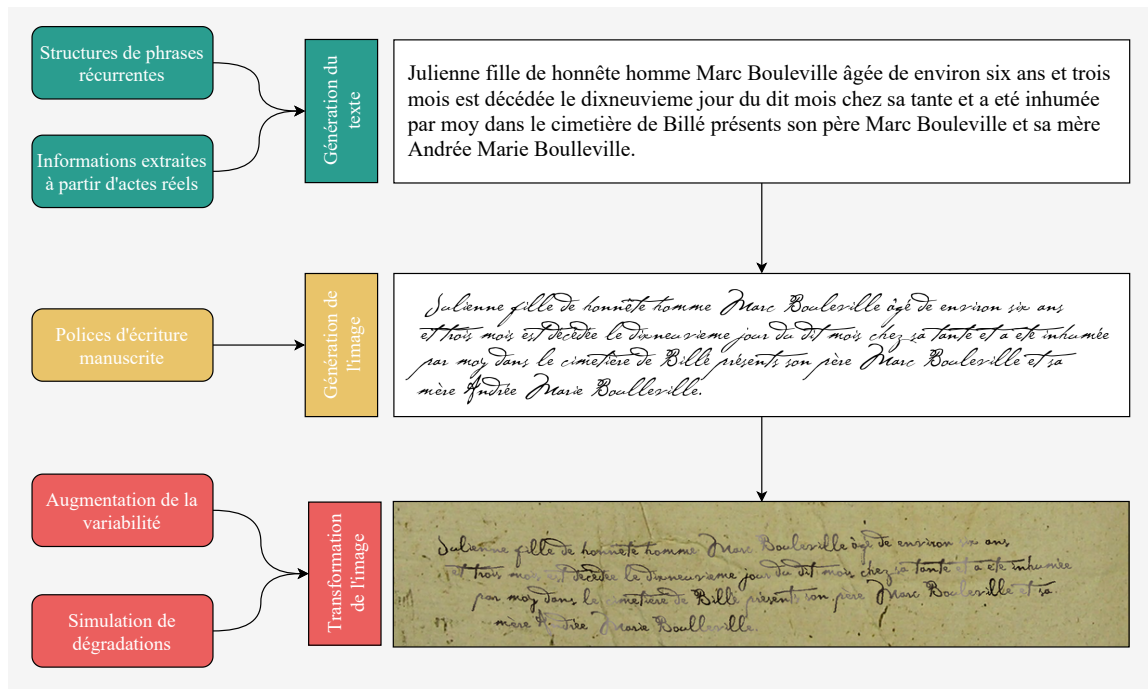 Structures de phrases
récurrentes
Informations extraites
à partir d'actes réels
Génération du
texte
Julienne fille de honnête homme Marc Bouleville âgée de environ six ans et trois
mois est décédée le dixneuvieme jour du dit mois chez sa tante et a eté inhumée
par moy dans le cimetière de Billé présents son père Marc Bouleville et sa mère
Andrée Marie Boulleville.
Polices d'écriture
manuscrite
Génération de
l'image
Julienne fille de honnête homme Marc Bouleville âgé de environ six ans
et trois mois est décédée le dixneuvieme jour du dit mois chez sa tante et a eté inhumée
par moy dans le cimetière de Billé présents son père Marc Bouleville et sa
mère Andrée Marie Boulleville.
Augmentation de la
variabilité
Simulation de
dégradations
Transformation
de l'image
Julienne fille de honnête homme Marc Bouleville âgé de environ six ans
et trois mois est décédée le dixneuvieme jour du dit mois chez sa tante et a eté inhumée
par moy dans le cimetière de Billé présents son père Marc Bouleville et sa
mère A drée Marie Boulleville.